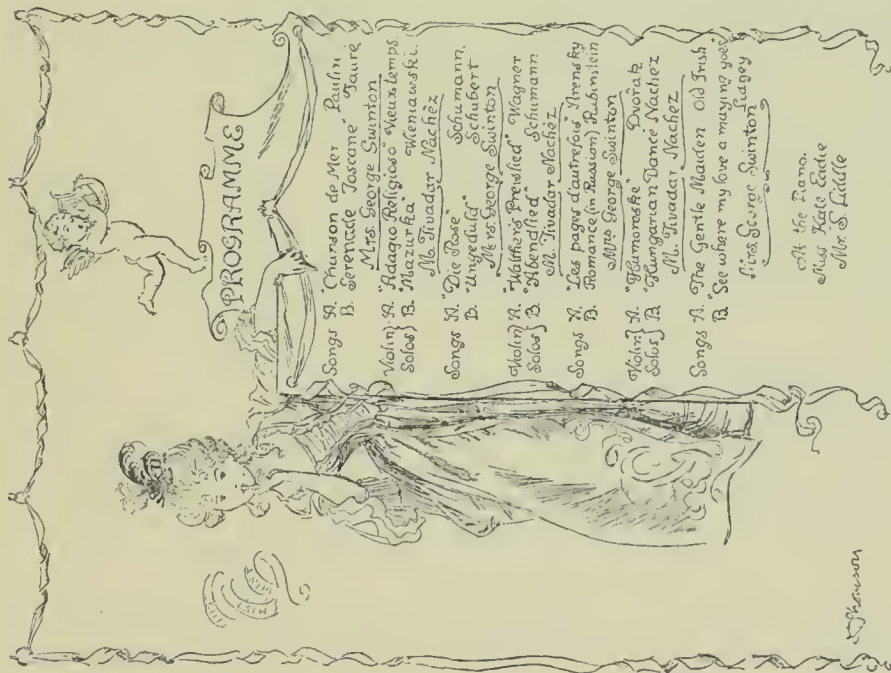 HSH HSH HSH
PROGRAMME
Songs A. "Chanson de Mer" Paulin
B. "Serenade Toscane" Fauré
Mrs. George Swinton
Violin} A. "Adagio Religioso" Vieuxtemps.
Solos} B. "Mazurka" Wieniawski.
M. Tivadar Nachèz
Songs A. "Die Rose" Schumann.
B. "Ungeduld" Schubert
Mrs. George Swinton
Violin} A. "Walther's Preislied" Wagner
Solos} B. "Abendlied" Schumann
M. Tivadar Nachèz
Songs A. "Les pages d'autrefois" Arensky
B. Romance (in Russian) Rubinstein
Mrs George Swinton
Violin} A. "Humoraske" Dvořák
Solos} B. "Hungarian Dance" Nachèz
M. Tivadar Nachèz
Songs A. "The Gentle Maiden" Old Irish
B. "See where my love a maying goes"
Lidgey
Mrs. George Swinton
At the Piano.
Miss Kate Eadie
Mr. S. Liddle